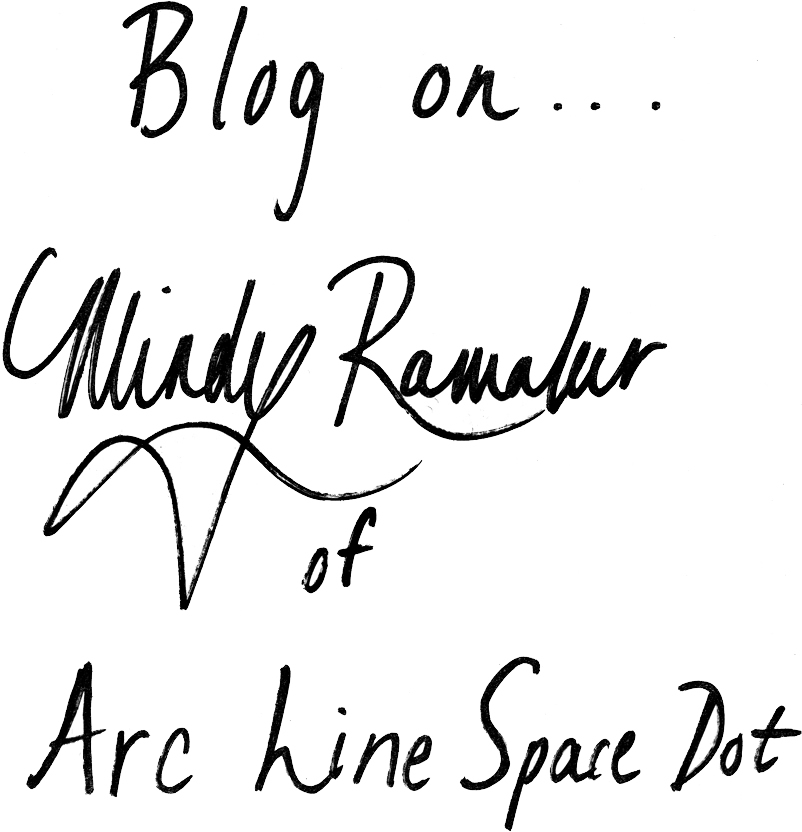 Blog on...
Mindy
of
Arc Line Space Dot